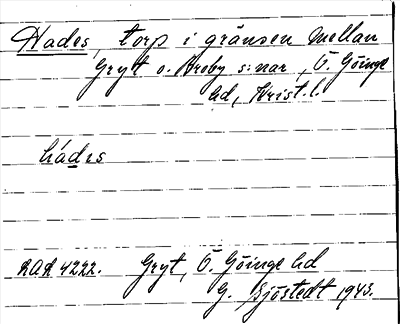 Hades, torp i gränsen mellan
Gryt o. Broby s:nar, Ö. Göinge
hd, Krist. l.
hádes
AOA 4222. Gryt, Ö. Göinge hd
G. Sjöstedt 1943.